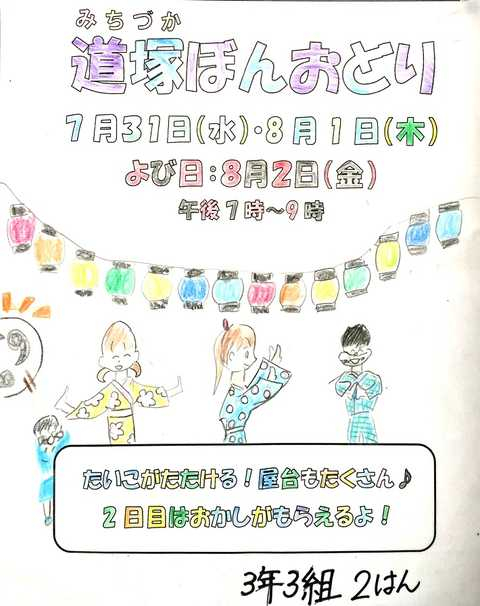 みちづか
道塚ぼんおどり
7月31日(水)・8月1日(木)
よび日:8月2日(金)
午後7時~9時
たいこがたたける!屋台もたくさん♪
2日目はおかしがもらえるよ!
3年3組 2はん